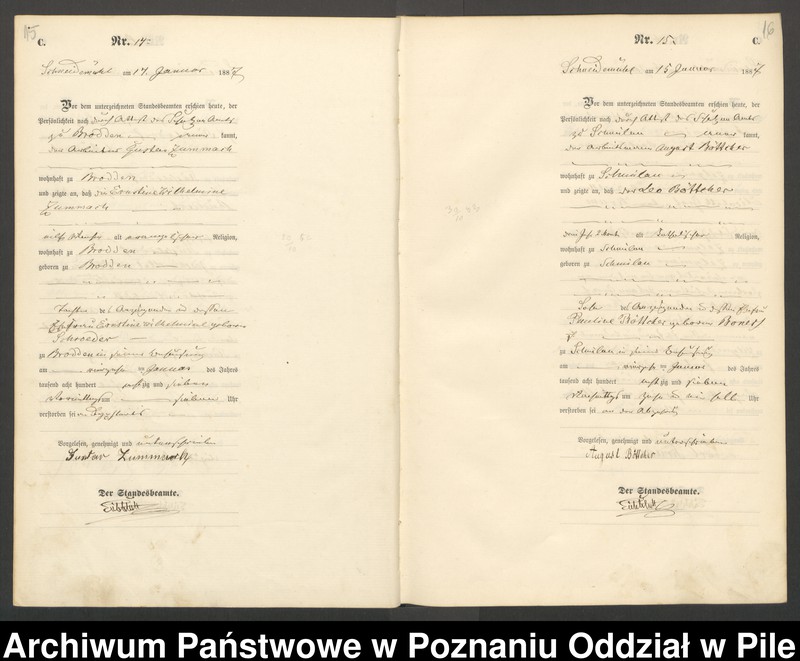 15
C.
Nr. 14.
Schneidemühl am 17. Januar 1887
Vor dem unterzeichneten Standesbeamten erschien heute, der
Persönlichkeit nach durch Attest des Amts
zu Brodden kannt,
der Arbeiter Gustav Zummach
wohnhaft zu Brodden
und zeigte an, daß die Ernstine Wilhelmine
Zummach
alt evangelischer Religion,
wohnhaft zu Brodden
geboren zu Brodden
Tochter des Anzeigenden und dessen
Ehefrau Ernstine Wilhelmine geborene
Schroeder
zu Brodden in seiner Behausung
am Januar des Jahres
tausend acht hundert achtzig und sieben
Vormittags um sieben Uhr
verstorben sei
Vorgelesen, genehmigt und unterschrieben
Gustav Zummach
Der Standesbeamte.
16
Nr. 15.
C.
Schneidemühl am 15 Januar 1887.
Vor dem unterzeichneten Standesbeamten erschien heute, der
Persönlichkeit nach durch Attest des Amts
zu Schmilau kannt,
der August Böttcher
wohnhaft zu Schmilau
und zeigte an, daß der Leo Böttcher
alt katholischer Religion,
wohnhaft zu Schmilau
geboren zu Schmilau
Sohn des Anzeigenden und dessen Ehefrau
Pauline Böttcher geborene
zu Schmilau in seiner Behausung
am Januar des Jahres
tausend acht hundert achtzig und sieben
Nachmittags um zehn ein halb Uhr
verstorben sei an der
Vorgelesen, genehmigt und unterschrieben
August Böttcher
Der Standesbeamte.
Archiwum Państwowe w Poznaniu Oddział w Pile